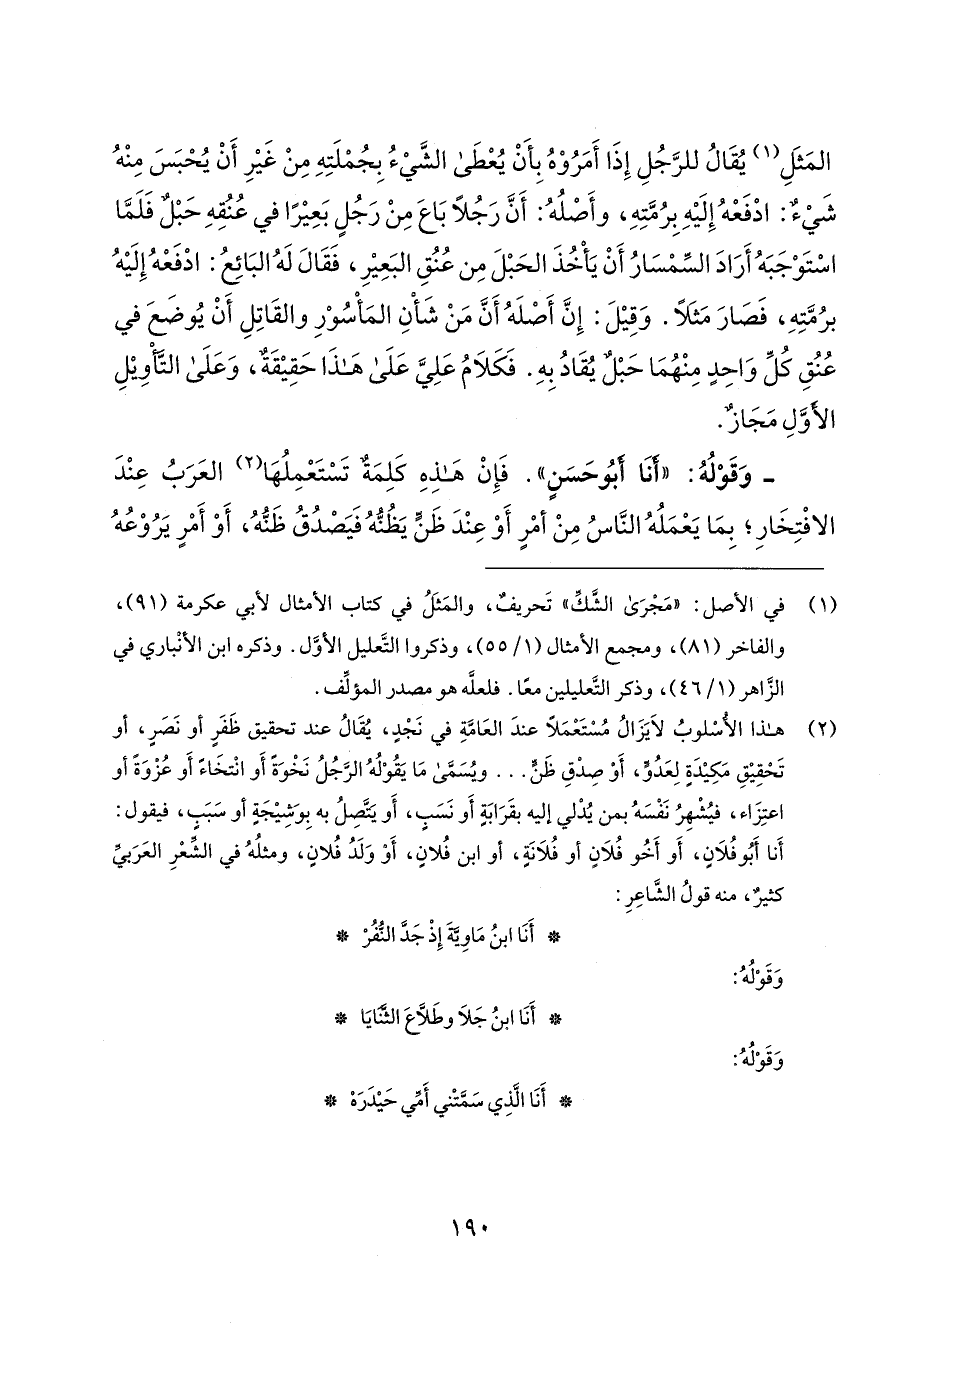 المَثَلِ(١) يُقَالُ للرَّجُلِ إِذَا أَمَرُوْهُ بِأَنْ يُعْطَىٰ الشَّيْءُ بِجُمْلَتِهِ مِنْ غَيْرِ أَنْ يُحْبَسَ مِنْهُ
شَيْءٌ: ادْفَعْهُ إِلَيْهِ بِرُمَّتِهِ، وأَصْلُهُ: أَنَّ رَجُلاً بَاعَ مِنْ رَجُلٍ بَعِيْرًا في عُنُقِهِ حَبْلٌ فَلَمَّا
اسْتَوْجَبَهُ أَرَادَ السِّمْسَارُ أَنْ يَأْخُذَ الحَبْلَ مِن عُنُقِ البَعِيْرِ، فَقَالَ لَهُ البَائِعُ: ادْفَعْهُ إِلَيْهُ
بِرُمَّتِهِ، فَصَارَ مَثَلاً. وَقِيْلَ: إِنَّ أَصْلَهُ أَنَّ مَنْ شَأْنِ المَأْسُوْرِ والقَاتِلِ أَنْ يُوضَعَ في
عُنُقِ كُلِّ وَاحِدٍ مِنْهُمَا حَبْلٌ يُقَادُ بِهِ. فَكَلَامُ عَلِيَّ عَلَىٰ هَـٰذَا حَقِيْقَةٌ، وَعَلَىٰ التَّأْوِيْلِ
الأَوَّلِ مَجَازٌ.
ـ وَقَوْلُهُ: «أَنَا أَبُوحَسَنٍ». فَإِنْ هَـٰذِهِ كَلِمَةٌ تَسْتَعْمِلُهَا(٢) العَرَبُ عِنْدَ
الافْتِخَارِ؛ بِمَا يَعْمَلُهُ النَّاسُ مِنْ أمْرٍ أَوْ عِنْدَ ظَنٍّ يَظُنُّهُ فَيَصْدُقُ ظَنُّهُ، أَوْ أَمْرٍ يَرُوْعُهُ
(١) في الأصل: «مَجْرَىٰ الشَّكِّ» تَحريفٌ، والمَثَلُ في كتاب الأمثال لأبي عكرمة (٩١)،
والفاخر (٨١)، ومجمع الأمثال (١/ ٥٥)، وذكروا التَّعليل الأوَّل. وذكره ابن الأنْباري في
الزَّاهر (١/ ٤٦)، وذكر التَّعليلين معًا. فلعلَّه هو مصدر المؤلِّف.
(٢) هـٰذا الأُسْلوبُ لاَيَزالُ مُسْتَعْمَلاً عندَ العَامَّةِ في نَجْدٍ، يُقَالُ عند تحقيق ظَفَرٍ أو نَصَرٍ، أو
تَحْقِيْقِ مَكِيْدَةٍ لِعَدُوٍّ، أَوْ صِدْقِ ظَنٍّ... ويُسَمَّى مَا يَقُوْلُهُ الرَّجُلُ نَخْوَةً أَو انْتخَاءً أَو عُزْوَةً أو
اعتِزَاء، فيُشْهِرُ نَفْسَهُ بمن يُدْلي إليه بقَرَابَةٍ أَو نَسَبٍ، أَو يَتَّصِلُ به بِوَشِيْجَةٍ أو سَبَبٍ، فيقول:
أنا أَبُوفُلَانٍ، أَو أَخُو فُلَانٍ أو فُلاَنَةٍ، أو ابن فُلانٍ، أَوْ وَلَدُ فُلانٍ، ومثلُهُ في الشِّعْرِ العَرَبيِّ
كثيرٌ، منه قولُ الشَّاعِرِ:
* أَنَا ابنُ مَاوِيَّةَ إِذْ جَدَّ النُّفُرْ *
وَقَوْلُهُ:
* أَنَا ابنُ جَلاَ وطَلاَّعَ الثَّنَايَا *
وَقَوْلُهُ:
* أَنَا الَّذِي سَمَّتْني أُمِّي حَيْدَرَهْ *
١٩٠